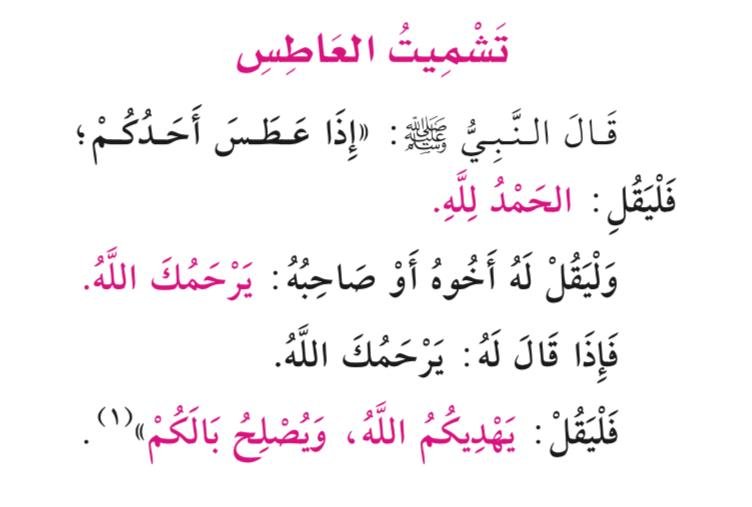 تَشْمِيتُ العَاطِسِ
قَالَ النَّبِيُّ ﷺ: «إِذَا عَطَسَ أَحَدُكُمْ؛
فَلْيَقُلِ: الحَمْدُ لِلَّهِ.
وَلْيَقُلْ لَهُ أَخُوهُ أَوْ صَاحِبُهُ: يَرْحَمُكَ اللَّهُ.
فَإِذَا قَالَ لَهُ: يَرْحَمُكَ اللَّهُ.
فَلْيَقُلْ: يَهْدِيكُمُ اللَّهُ، وَيُصْلِحُ بَالَكُمْ»(١).